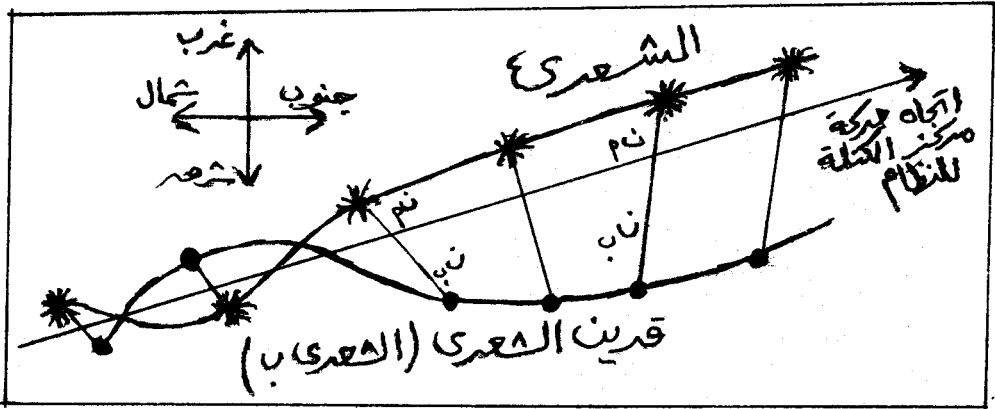 غرب
شمال
جنوب
شرق
الشعرى
اتجاه حركة
مركز الكتلة
للنظام
قرين الشعرى (الشعرى ب)